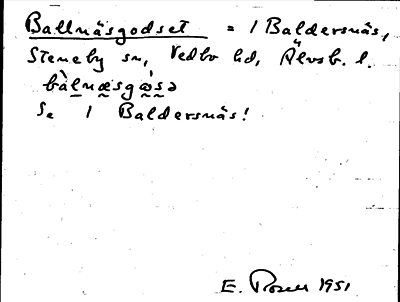 Ballnäsgodset = 1 Baldersnäs,
Steneby sn, Vedbo hd, Älvsb. l.
bàlnæsgɷ̀sə
Se 1 Baldersnäs!
E. Rosen 1951